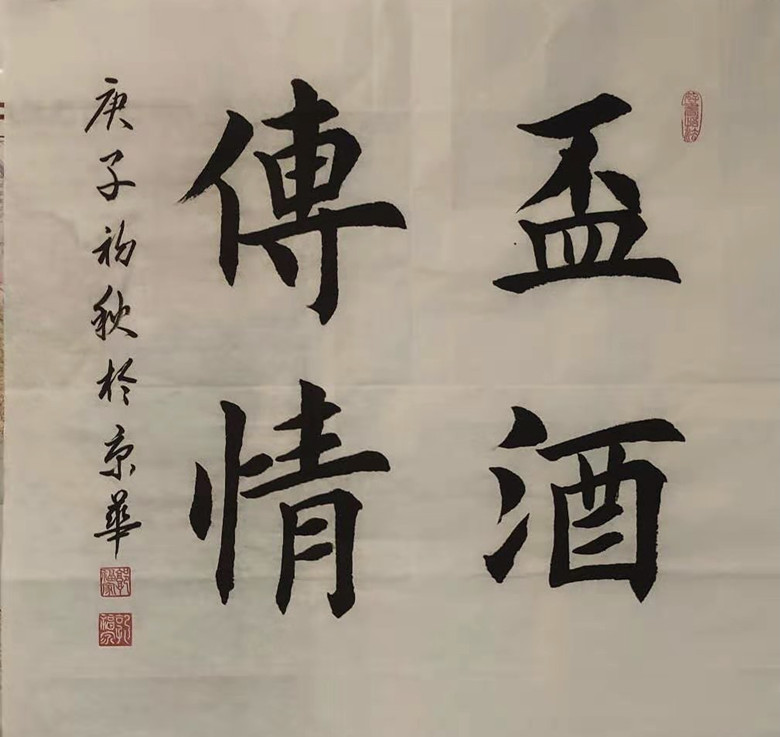 盃酒
傳情
庚子初秋於京華